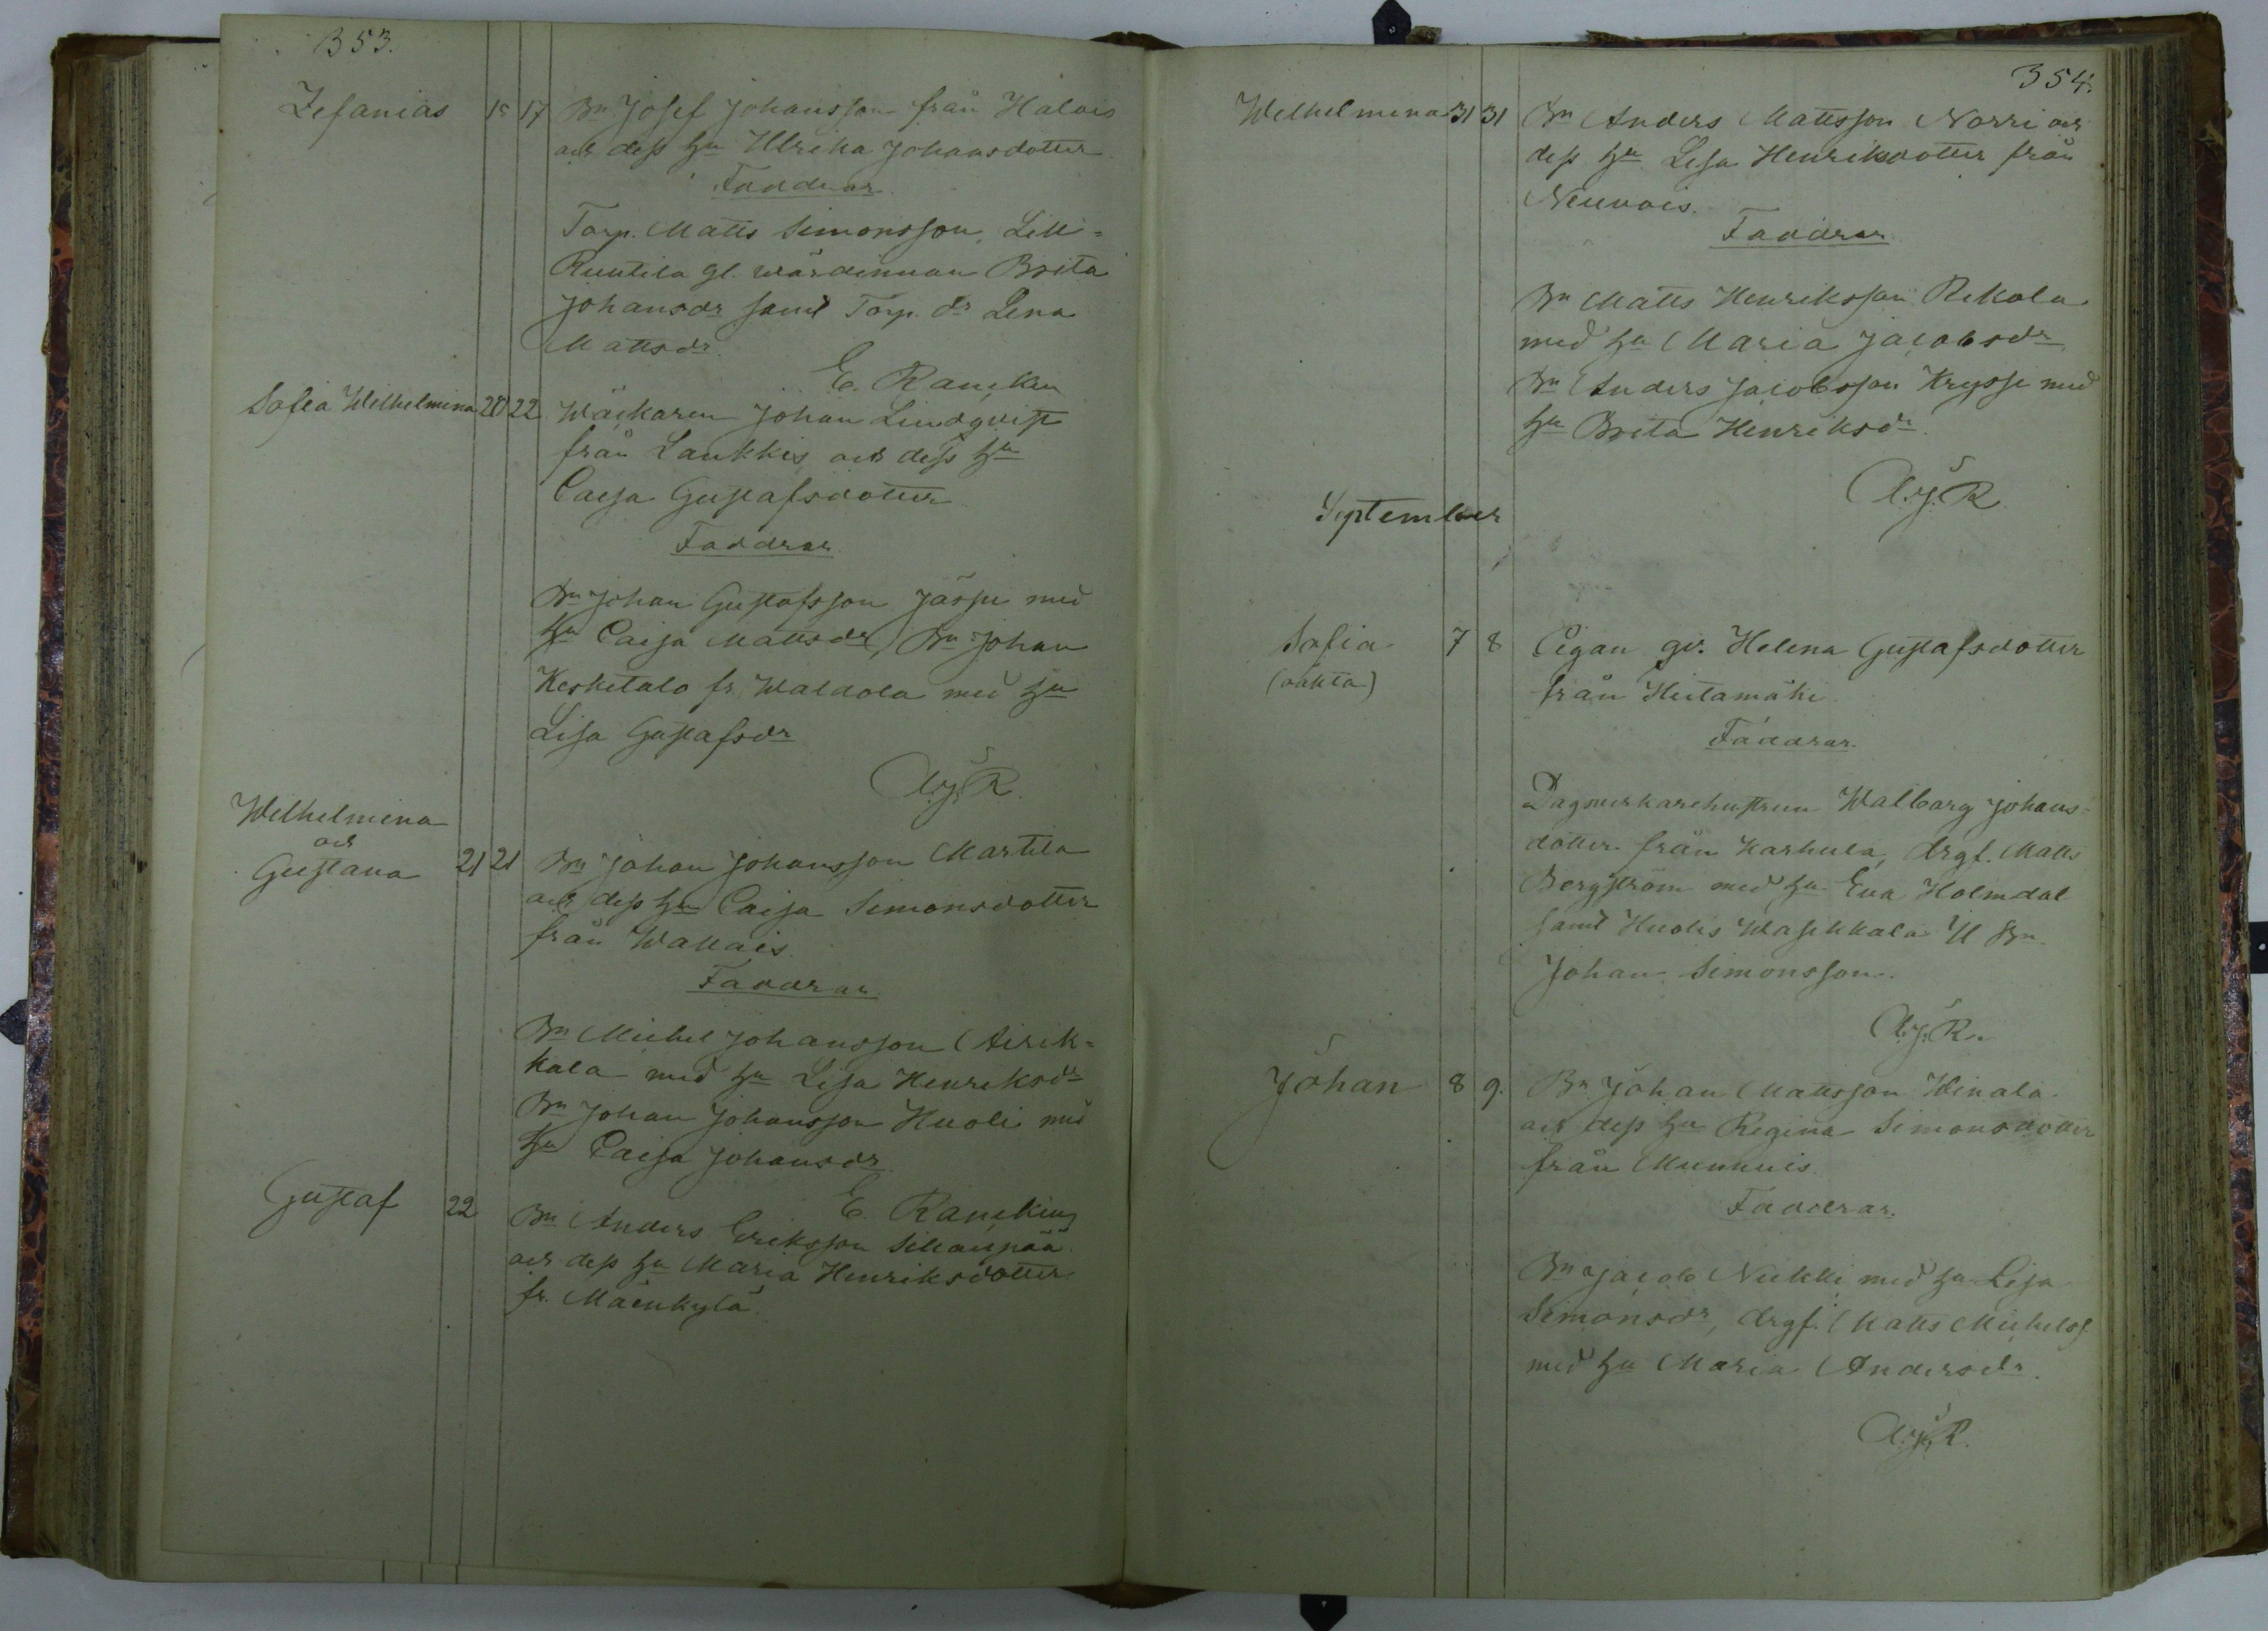 353.
Zefanias 15 17 Bn Josef Johansson från Halois
och dess hu Ulrika Johansdotter
Faddrar
Torp. Matts Simonsson, Lill=
Ruutila gl. wärdinnan Brita
Johansdr samt Torp. dr Lena
Mattsdr.
E. Rancken
Sofia Wilhelmina 20 22 Wäckaren Johan Lindqvist
från Laukkis och dess hu
Caisa Gustafsdotter
Faddrar.
Bn Johan Gustafsson Jäspi med
hu Caisa Mattsdr, Bn Johan
Kesketalo fr. Waldola med hu
Lisa Gustafsdr
A.J.R.
Wilhelmina
och
Gustava 21 21 Bn Johan Johansson Martila
och dess hu Caisa Simonsdotter
från Wallais.
Faddrar
Bn Michel Johansson Airik=
kala med hu Lisa Henriksdr
Bn Johan Johansson Huoli med
hu Caisa Johansdr.
E. Rancken
Gustaf 22 Bn Anders Eriksson Sillanpää
och dess hu Maria Henriksdotter
fr. Mäenkylä.
354.
Wilhelmina 31 31 Bn Anders Mattsson Norri och
dess hu Lisa Henriksdotter från
Neuvois.
Faddrar
Bn Matts Henriksson Rekola
med hu Maria Jacobsdr
Bn Anders Jacobsson Kryssi med
hu Brita Henriksdr.
A.J.R.
September
Sofia 7 8 Pigan gv. Helena Gustafsdotter
(oäkta) från Hiitamäki
Faddrar.
Dagsverkarehustrun Walborg Johans-
dotter från Karhula, drgf. Matts
Bergström med hu Eva Holmdal
samt Huolis Wasikkala Y Bn
Johan Simonsson.
A.J.R.
Johan 8 9. Bn Johan Mattsson Winala
och dess hu Regina Simonsdotter
från Munnuis.
Faddrar.
Bn Jacob Nikki med hu Lisa
Simonsdr, drgf. Matts Michelss.
med hu Maria Andersdr.
A.J.R.